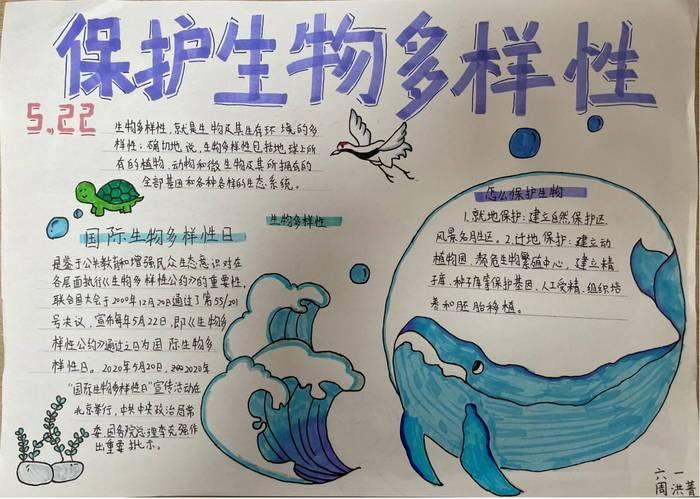 保护生物多样性
5.22
生物多样性,就是生物及其生存环境的多
样性;确切地说,生物多样性包括地球上所
有的植物、动物和微生物及其所拥有的
全部基因和各种各样的生态系统。
生物多样性
国际生物多样性日
是鉴于公共教育和增强民众生态意识对在
各层面执行《生物多样性公约》的重要性,
联合国大会于2000年12月20日通过了第55/201
号决议,宣布每年5月22日,即《生物多
样性公约》通过之日为国际生物多
样性日。2020年5月20日,2020年
“国际生物多样性日”宣传活动在
北京举行,中共中央政治局常
委、国务院总理李克强作
出重要批示。
怎么保护生物
1.就地保护:建立自然保护区
风景名胜区。2.迁地保护:建立动
植物园、濒危生物繁殖中心,建立精
子库、种子库等保护基因、人工受精、组织培
养和胚胎移植。
六一
周洪菁